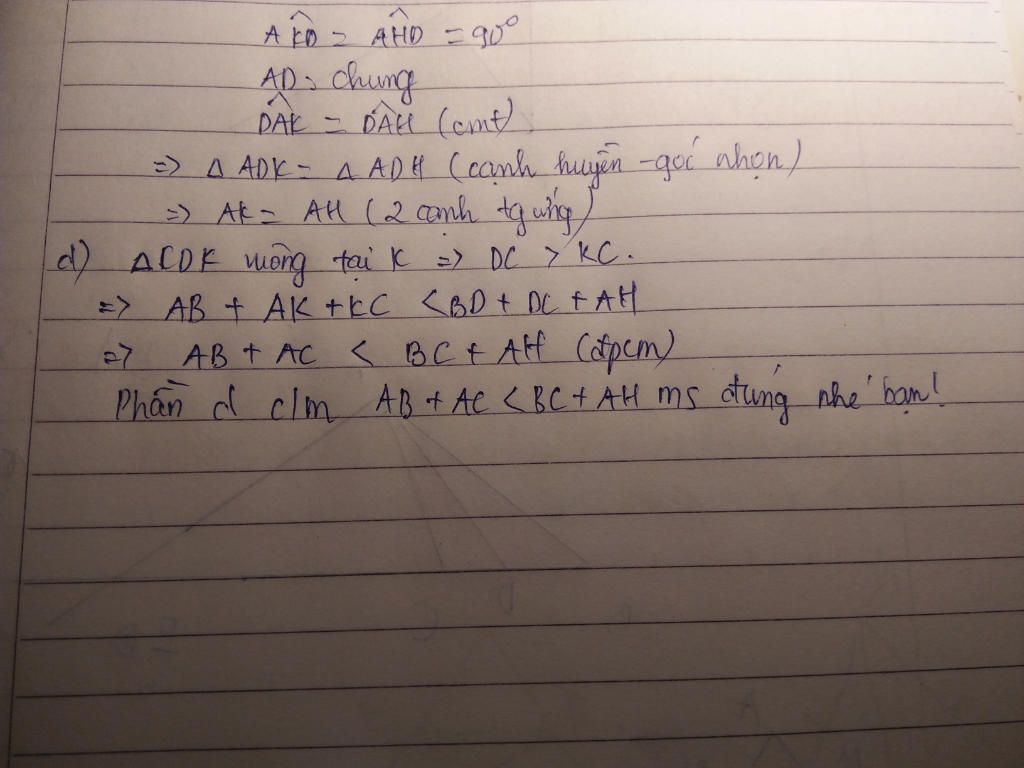 AK̂D = AĤD = 90°
AD: chung
DÂK = DÂH (cmt)
=> △ ADK = △ ADH (cạnh huyền - goć nhọn)
=> AK = AH (2 cạnh tg ứng)
d) △CDK vuông tại K => DC > KC.
=> AB + AK + KC < BD + DC + AH
=> AB + AC < BC + AH (đpcm)
Phần d c/m AB + AC < BC + AH ms đúng nhé bạn!